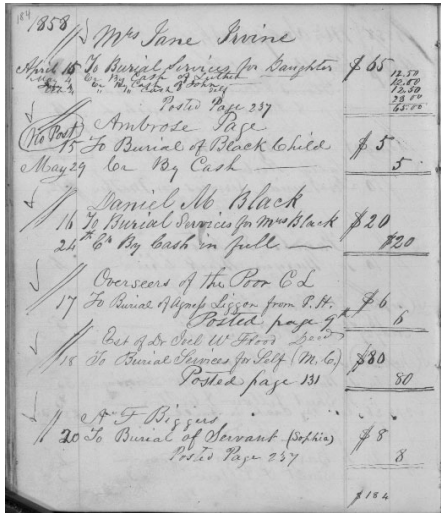 184
1858
Mrs Jane Irvine
April 15 To Burial Services for Daughter $65
Cr By Cash of Luther 12.50
Cr By Cash of John 10.00
" " Cash 12.50
28.00
Posted Page 237 65.00
No Post Ambrose Page
15 To Burial of Black Child $5
May 29 Cr By Cash 5
Daniel M Black
16 To Burial Services for Mrs Black $20
24th Cr By Cash in full $20
Overseers of the Poor C L
17 To Burial of Agness Liggon from P. H. $6
Posted page 6
Est of Dr Joel W Flood Decd
18 To Burial Services for Self (M, C) $80
Posted page 131 80
A F Biggers
20 To Burial of Servant (Sophia) $8
Posted Page 237 8
$184